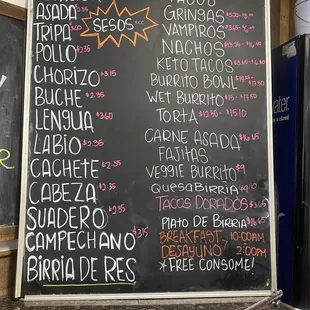 ASADA
TRIPA
POLLO $2.35
SESOS
CHORIZO $3.15
BUCHE $2.35
LENGUA $3.60
LABIO $2.35
CACHETE $2.35
CABEZA $2.35
SUADERO $2.35
CAMPECHANO $3.15
BIRRIA DE RES
TACOS
GRINGAS
VAMPIROS
NACHOS
KETO TACOS
BURRITO BOWL
WET BURRITO
TORTA $12.50 - 15.10
CARNE ASADA $16.65
FAJITAS
VEGGIE BURRITO $9
QUESABIRRIA
TACOS DORADOS
PLATO DE BIRRIA $16.65
BREAKFAST 10:00AM
DESAYUNO 2:00PM
*FREE CONSOME!
water